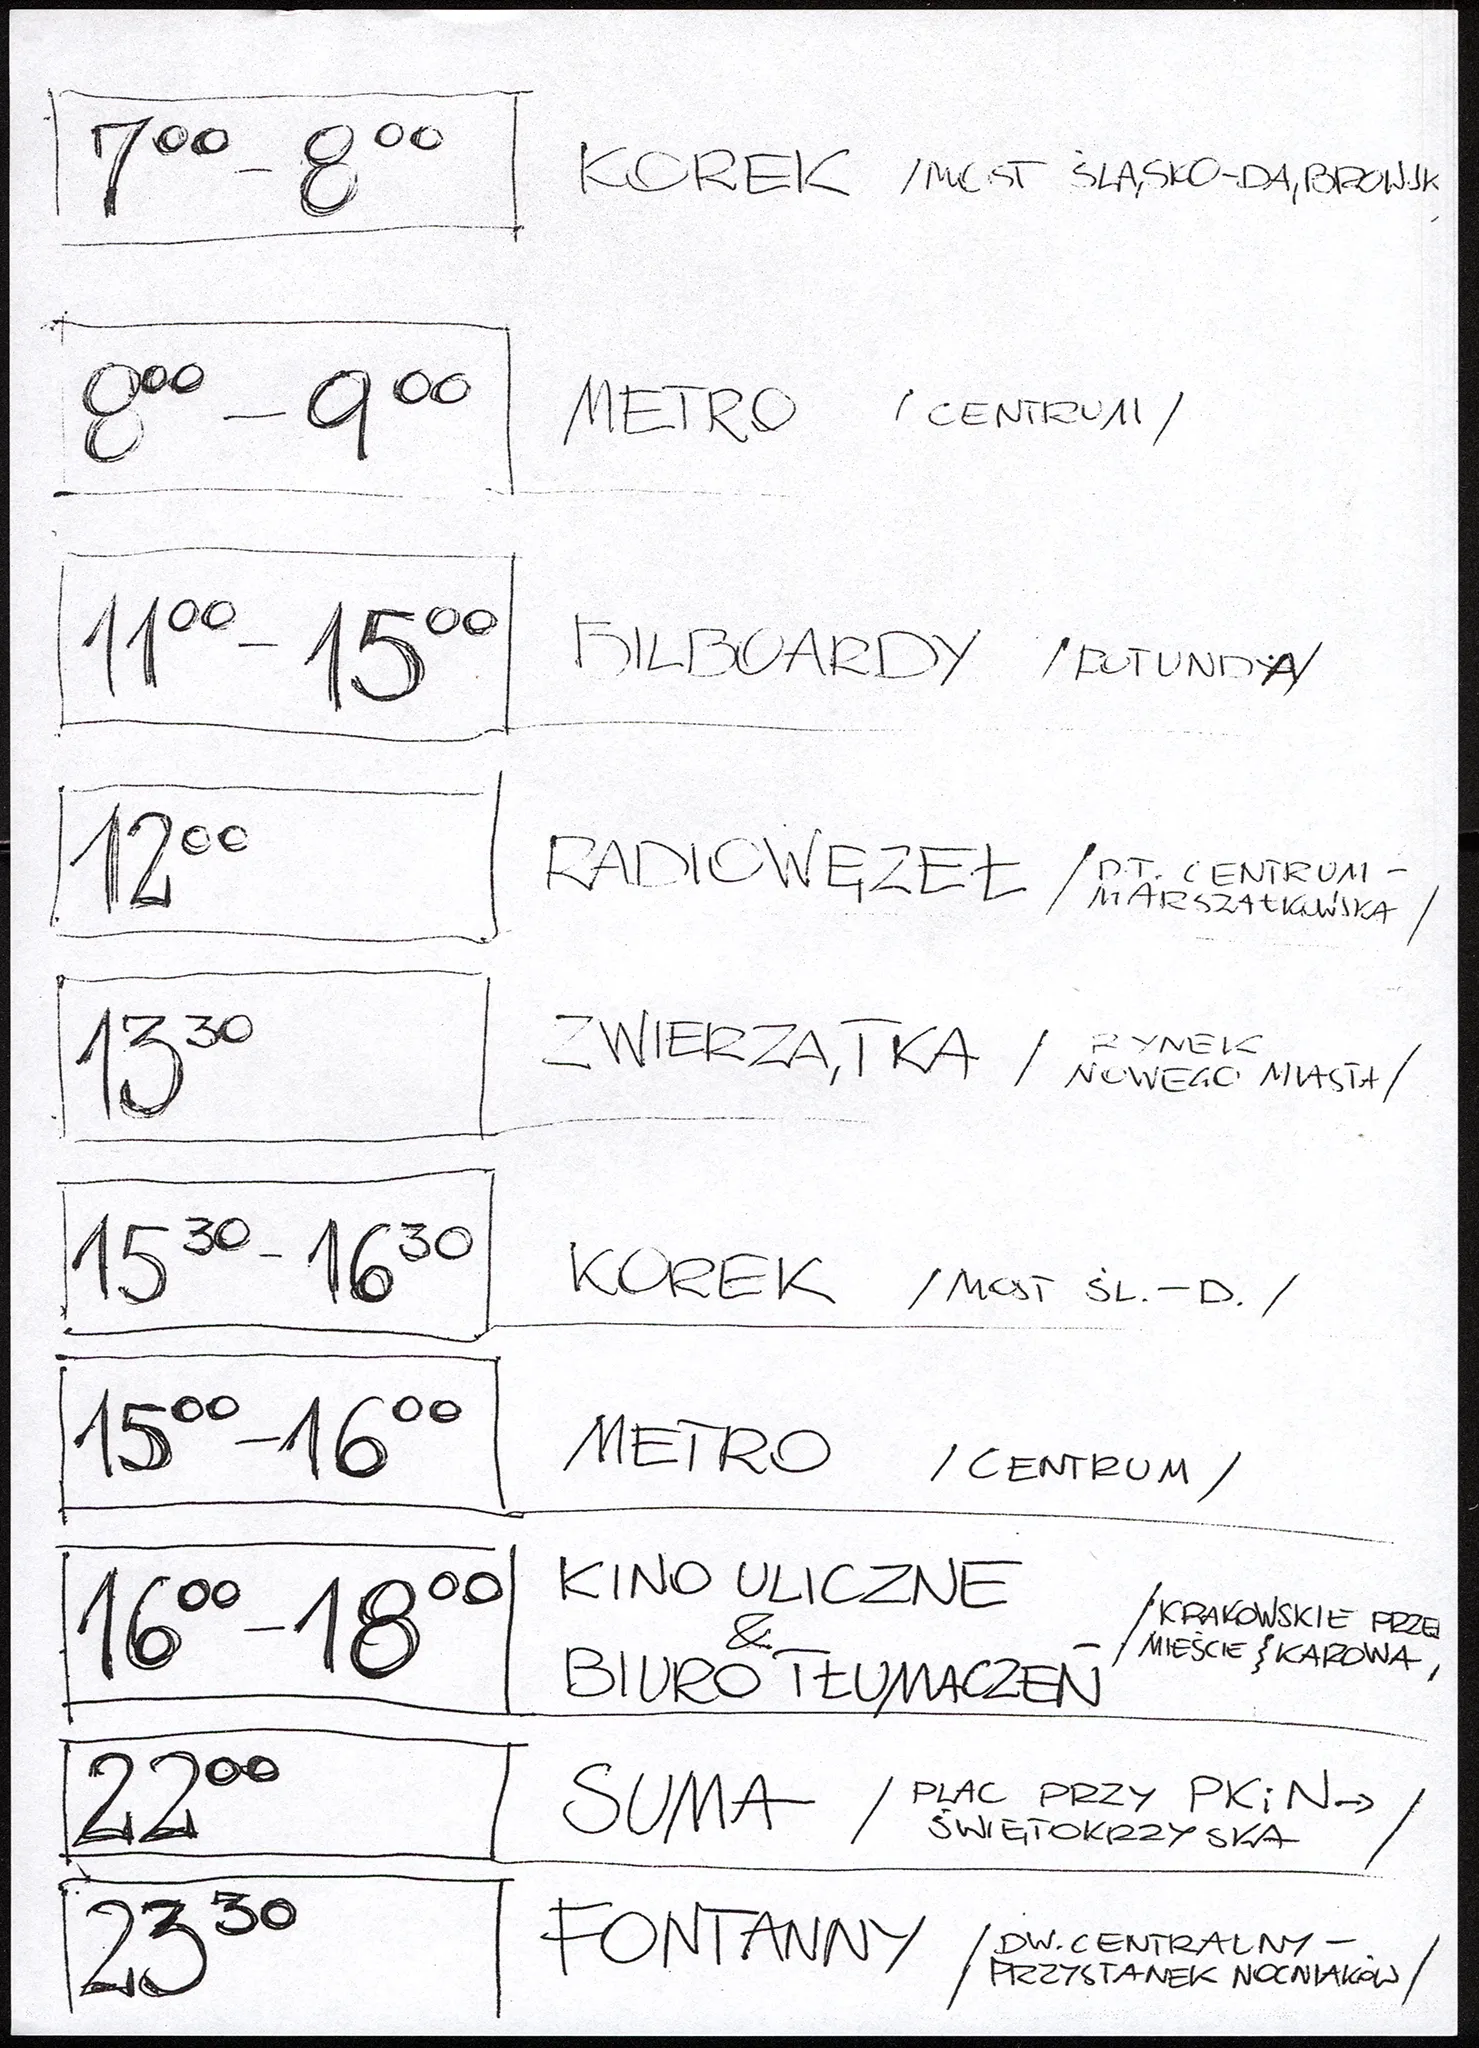 7⁰⁰ – 8⁰⁰ KOREK /MOST ŚLĄSKO-DĄBROWSK
8⁰⁰ – 9⁰⁰ METRO /CENTRUM/
11⁰⁰ – 15⁰⁰ BILBOARDY /ROTUNDA/
12⁰⁰ RADIOWĘZEŁ /D.T. CENTRUM –
MARSZAŁKOWSKA/
13³⁰ ZWIERZĄTKA / RYNEK
NOWEGO MIASTA/
15³⁰ – 16³⁰ KOREK /MOST ŚL.–D./
15⁰⁰ – 16⁰⁰ METRO /CENTRUM/
16⁰⁰ – 18⁰⁰ KINO ULICZNE
&
BIURO TŁUMACZEŃ – /KRAKOWSKIE PRZE
MIEŚCIE } KAROWA,
22⁰⁰ SUMA / PLAC PRZY PKiN →
ŚWIĘTOKRZYSKA /
23³⁰ FONTANNY /DW. CENTRALNY –
PRZYSTANEK NOCNIAKÓW/